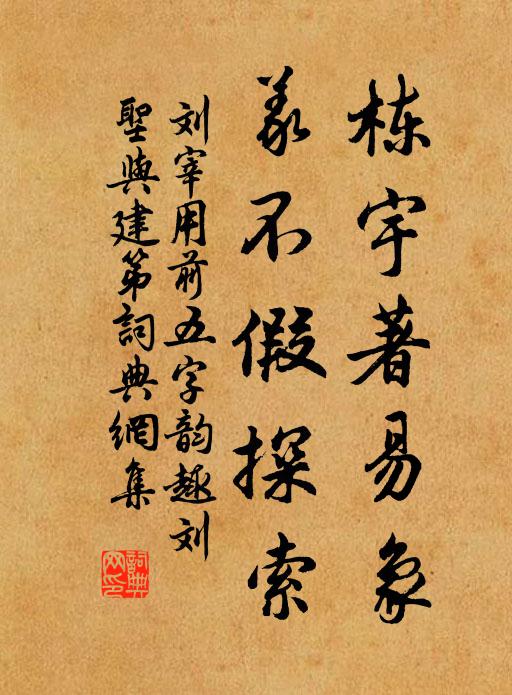 栋宇著易象
义不假探索
刘宰用前五字韵趣刘
聖與建第詞典網集
詞典网印